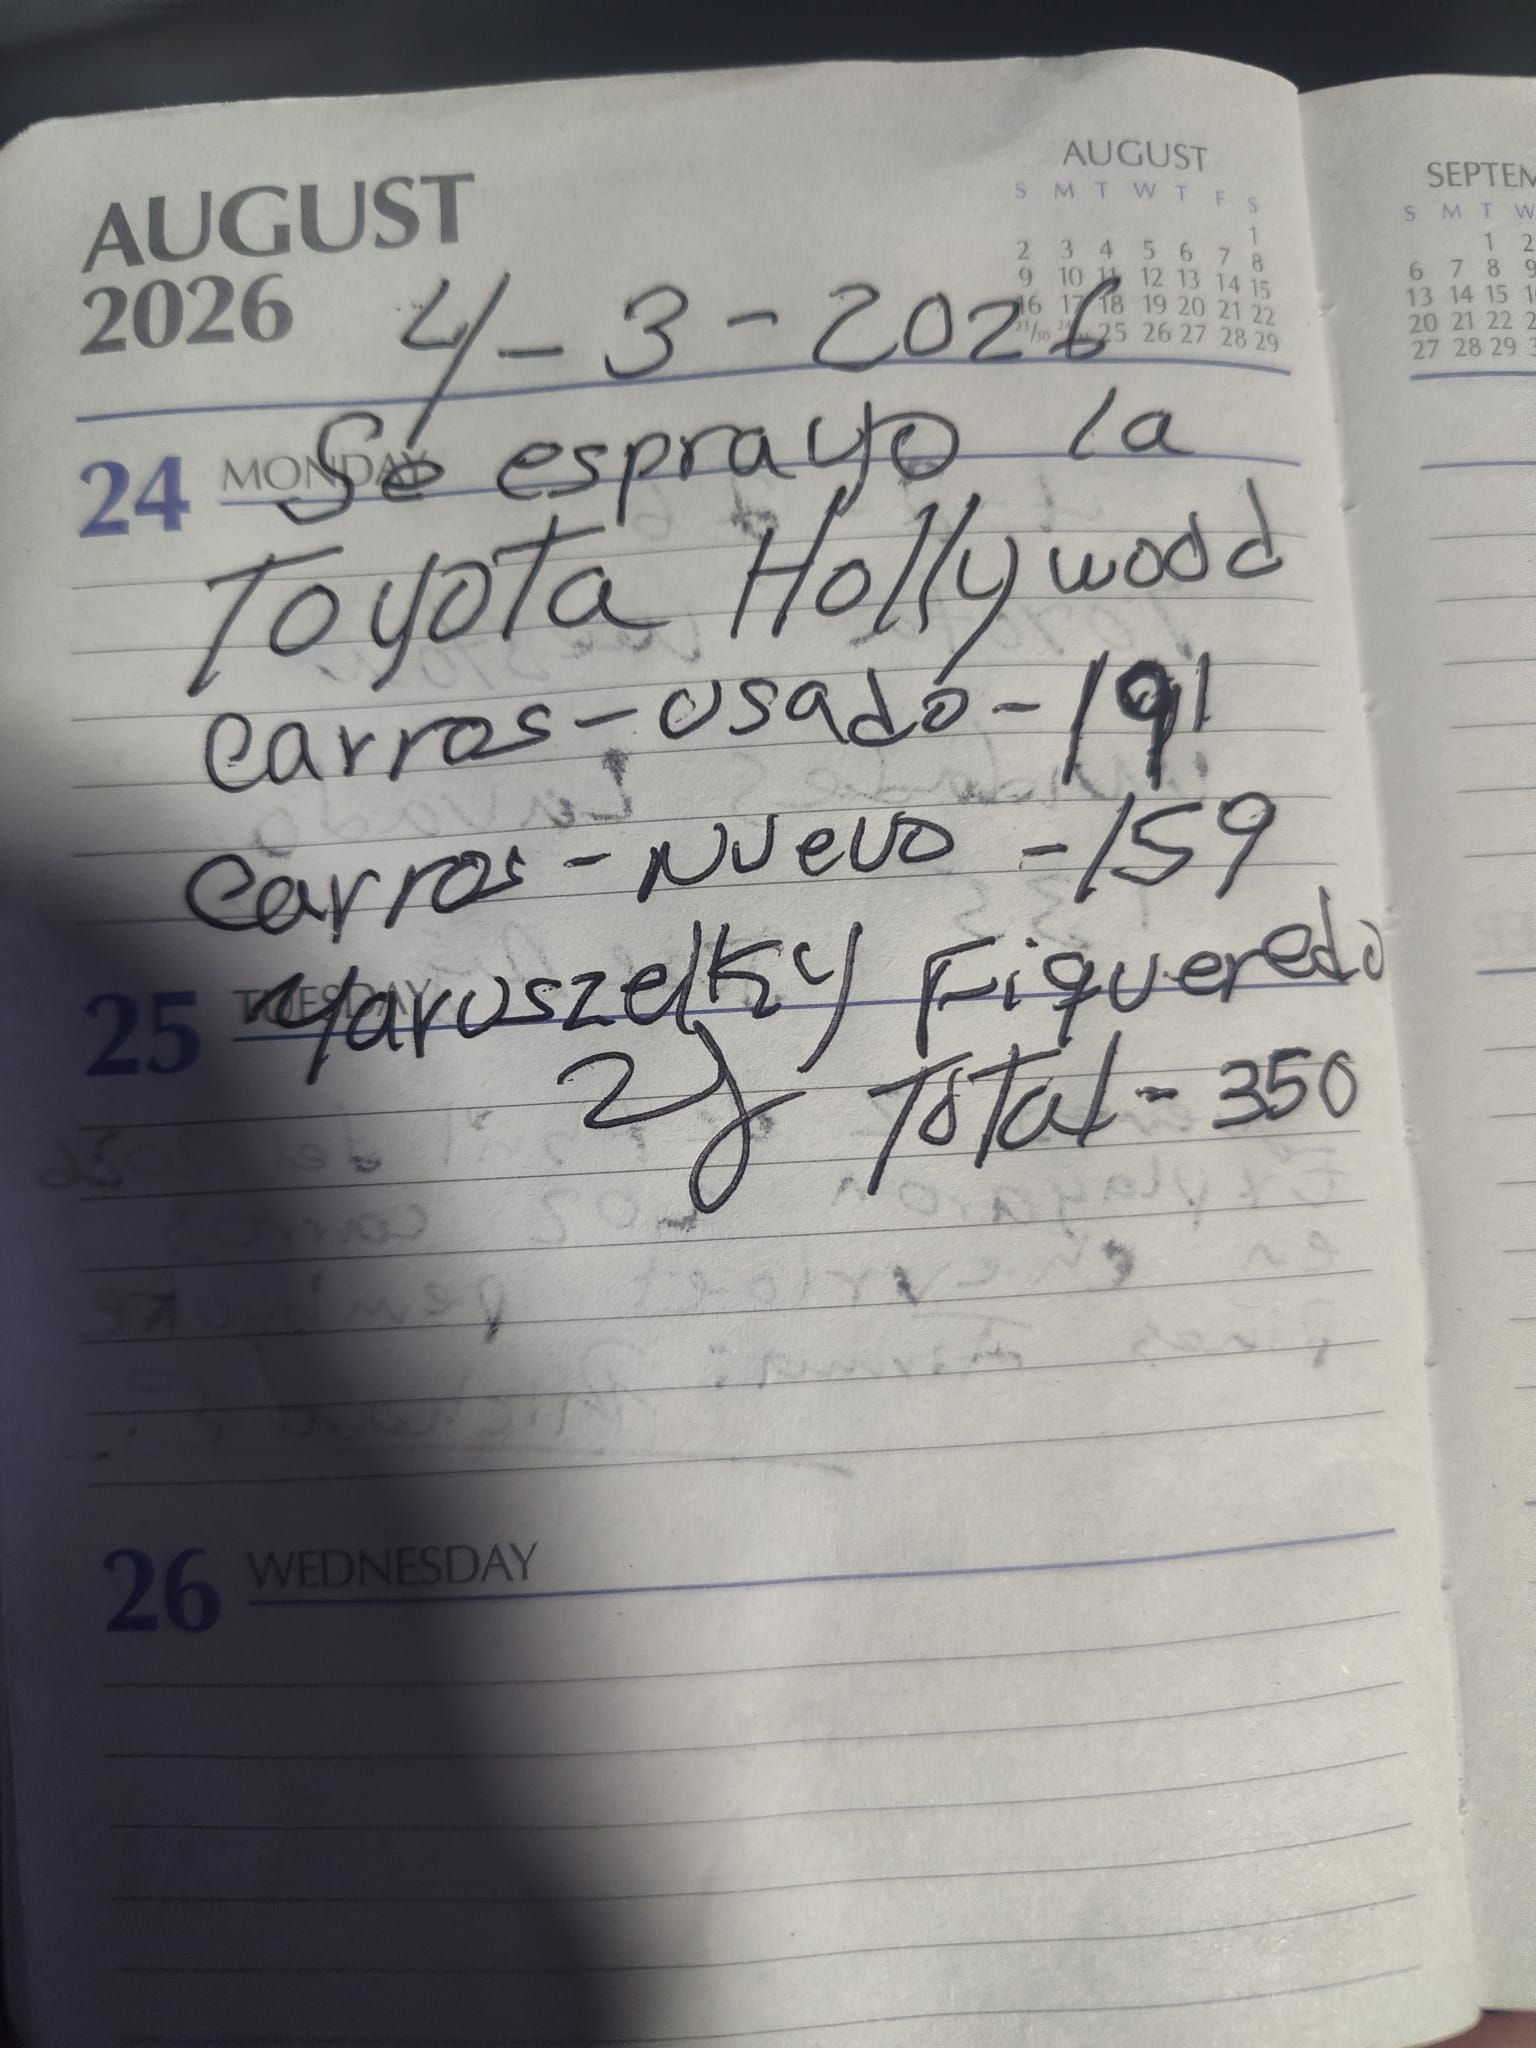 AUGUST
2026
AUGUST
S M T W T F S
1
2 3 4 5 6 7 8
9 10 11 12 13 14 15
16 17 18 19 20 21 22
23/30 25 26 27 28 29
SEPTEM
S M T W
1 2
6 7 8 9
13 14 15 1
20 21 22 2
27 28 29 3
4-3-2026
24 MONDAY
Se esprayo la
Toyota Hollywood
Carros-usado-191
Carros-Nuevo-159
25 TUESDAY
Yaruszelky Figueredo
Total-350
26 WEDNESDAY